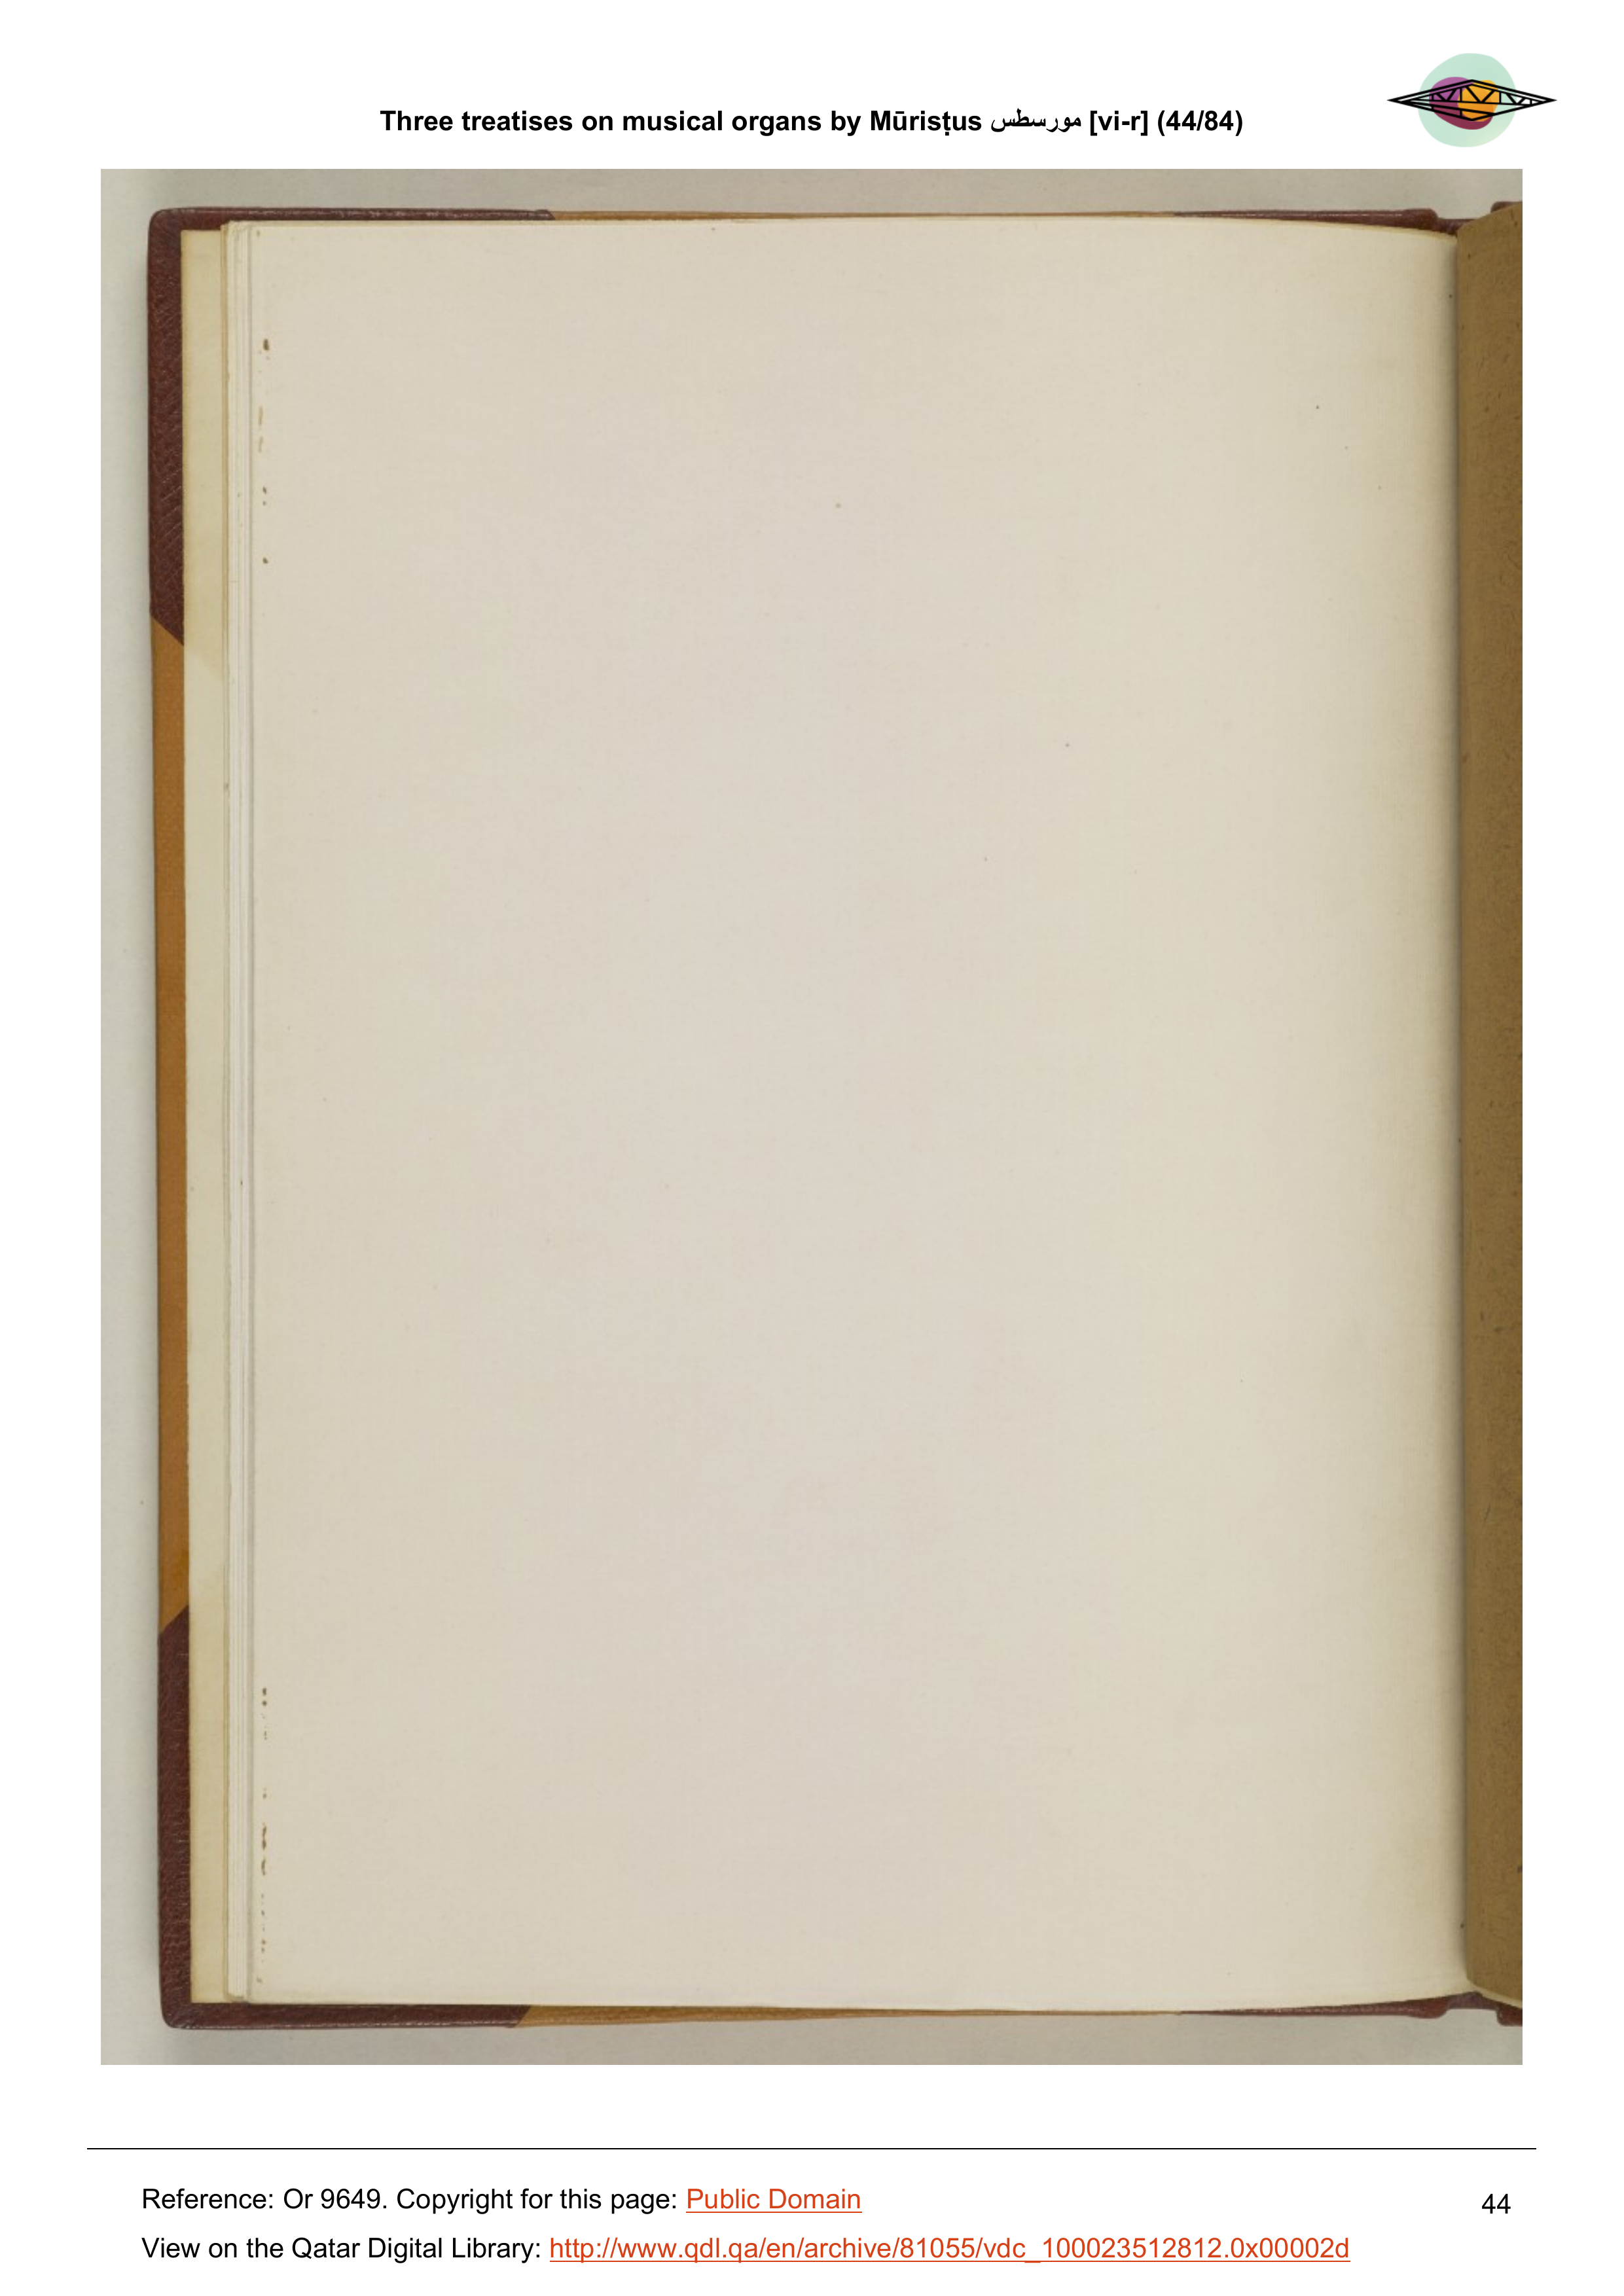 Three treatises on musical organs by Mūrisṭus مورسطس [vi-r] (44/84)
Reference: Or 9649. Copyright for this page: Public Domain
44
View on the Qatar Digital Library: http://www.qdl.qa/en/archive/81055/vdc_100023512812.0x00002d